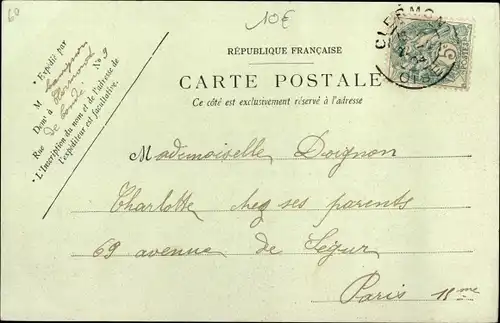 60
10€
RÉPUBLIQUE FRANÇAISE
CARTE POSTALE
Ce côté est exclusivement réservé à l'adresse
* Expédié par
M
Demt à Clermont
Rue de Condé No 9
* L'inscription du nom et de l'adresse de
l'expéditeur est facultative.
CLERMONT
OISE
Mademoiselle Doignon
Charlotte chez ses parents
69 avenue de Ségur
Paris 15me